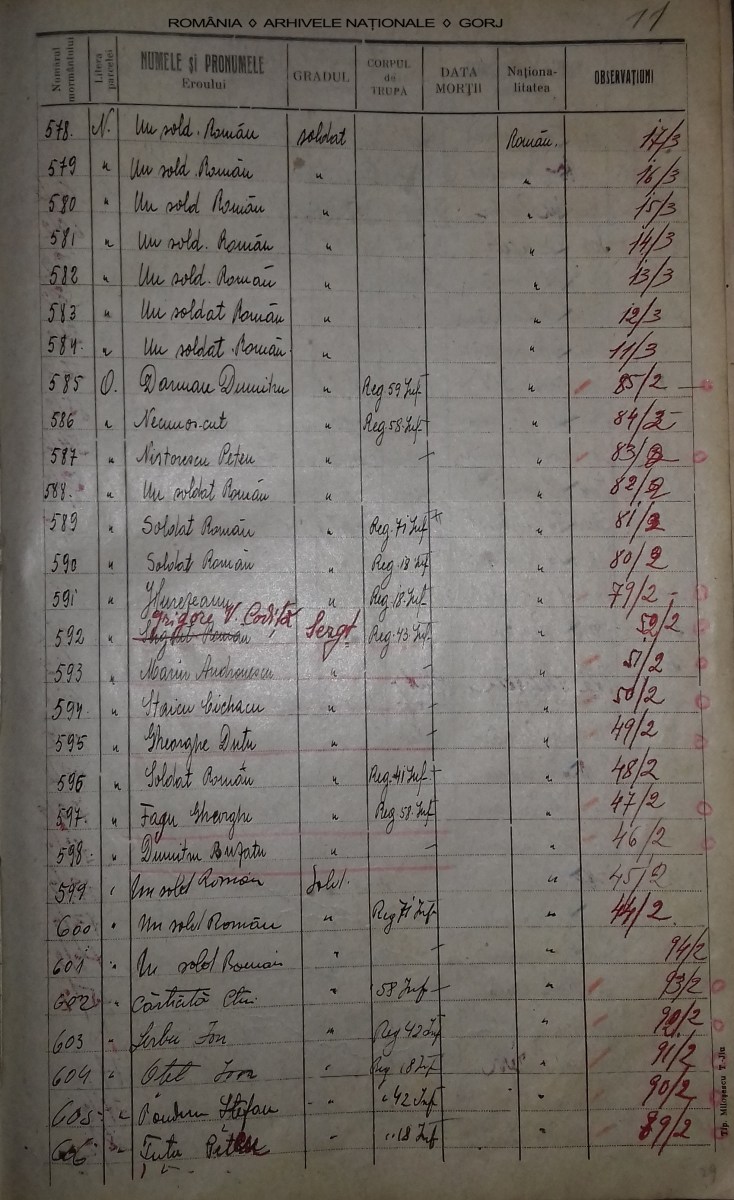 ROMÂNIA ◊ ARHIVELE NAȚIONALE ◊ GORJ
11
Numărul mormântului Litera parcelei NUMELE și PRONUMELE Eroului GRADUL CORPUL de TRUPĂ DATA MORȚII Naționalitatea OBSERVAȚIUNI
578. N. Un sold. Român soldat Român. 17/3
579 " Un sold. Român " " 16/3
580 " Un sold Român " " 15/3
581 " Un sold. Român " " 14/3
582 " Un sold. Român " " 13/3
583 " Un soldat Român " " 12/3
584. " Un soldat Român. " " 11/3
585 O. Darman Dumitru " Reg 59 Inf " 85/2
586 " Necunoscut " Reg 58 Inf " 84/2
587 " Nistorescu Petcu " — " 83/2
588. " Un soldat Român " " 82/2
589 " Soldat Român " Reg. 71 Inf " 81/2
590 " Soldat Român " Reg. 18 Inf " 80/2
591 " Hurezeanu " Reg 18 Inf " 79/2
592 " Grigore V. Codiță Sergt Reg 43 Inf. " 52/2
593 " Marin Andronescu " — " 51/2
594 " Staicu " — " 50/2
595 " Gheorghe Dutu " — " 49/2
596 " Soldat Român " Reg. 41 Inf " 48/2
597. " Fagu Gheorghe " Reg 58 Inf " 47/2
598. " Dumitru " — " 46/2
599 " Un sold Român Sold. " 45/2
600 " Un sold Român " Reg 71 Inf " 44/2
601 " Un sold Român " — " 94/2
602 " " 58 Inf " 93/2
603 " Sorbu Ion " Reg 42 Inf " 92/2
604 " Otel Ion " Reg 18 Inf " 91/2
605 " Ștefan " " 42 Inf " 90/2
606 " Țuțu Petre " " 18 Inf " 89/2
Tip. Miloșescu T.-Jiu
29